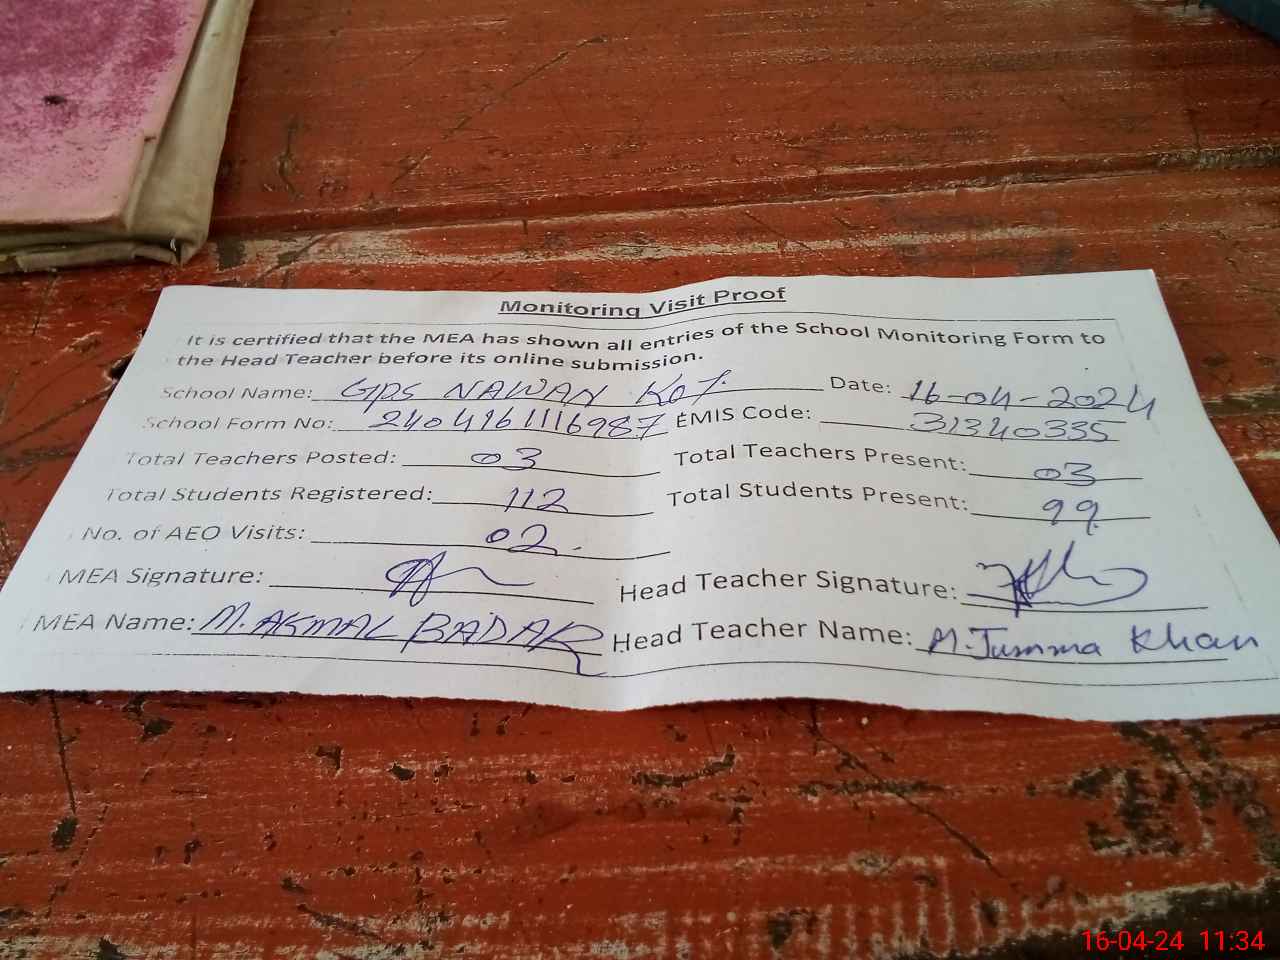 Monitoring Visit Proof
It is certified that the MEA has shown all entries of the School Monitoring Form to
the Head Teacher before its online submission.
School Name: GPS NAWAN Kot. Date: 16-04-2024
School Form No: 2404161116987 EMIS Code: 31340335
Total Teachers Posted: 03 Total Teachers Present: 03
Total Students Registered: 112 Total Students Present: 99.
No. of AEO Visits: 02.
MEA Signature: Head Teacher Signature:
MEA Name: M. AKMAL BADAR Head Teacher Name: M. Jumma Khan
16-04-24 11:34